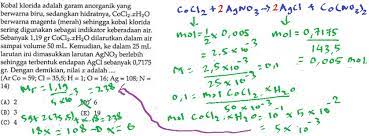 Kobal klorida adalah garam anorganik yang
berwarna biru, sedangkan hidratnya, CoCl₂.xH₂O
berwarna magenta (merah) sehingga kobal klorida
sering digunakan sebagai indikator keberadaan air.
Sebanyak 1,19 gr CoCl₂.xH₂O dilarutkan dalam air
sampai volume 50 mL. Kemudian, ke dalam 25 mL
larutan ini dimasukkan larutan AgNO₃ berlebih
sehingga terbentuk endapan AgCl sebanyak 0,7175
gr. Dengan demikian, nilai x adalah ....
(Ar Co = 59; Cl = 35,5; H = 1; O = 16; Ag = 108; N =
14)
(A) 2
(B) 4
(C) 5
6
(E) 19
Mr = 1,19
5×10⁻³ = 238
18x = 108 → x = 6
CoCl₂ + 2AgNO₃ → 2AgCl + Co(NO₃)₂
mol = 1/2 x 0,005
= 2,5 x 10⁻³
mol = 0,7175
143,5
= 0,005 mol
M = 2,5 x 10⁻³
25 x 10⁻³
= 0,1
0,1 = mol CoCl₂.xH₂O
50 x 10⁻³
mol CoCl₂.xH₂O = 10⁻¹ x 5 x 10⁻²
= 5 x 10⁻³